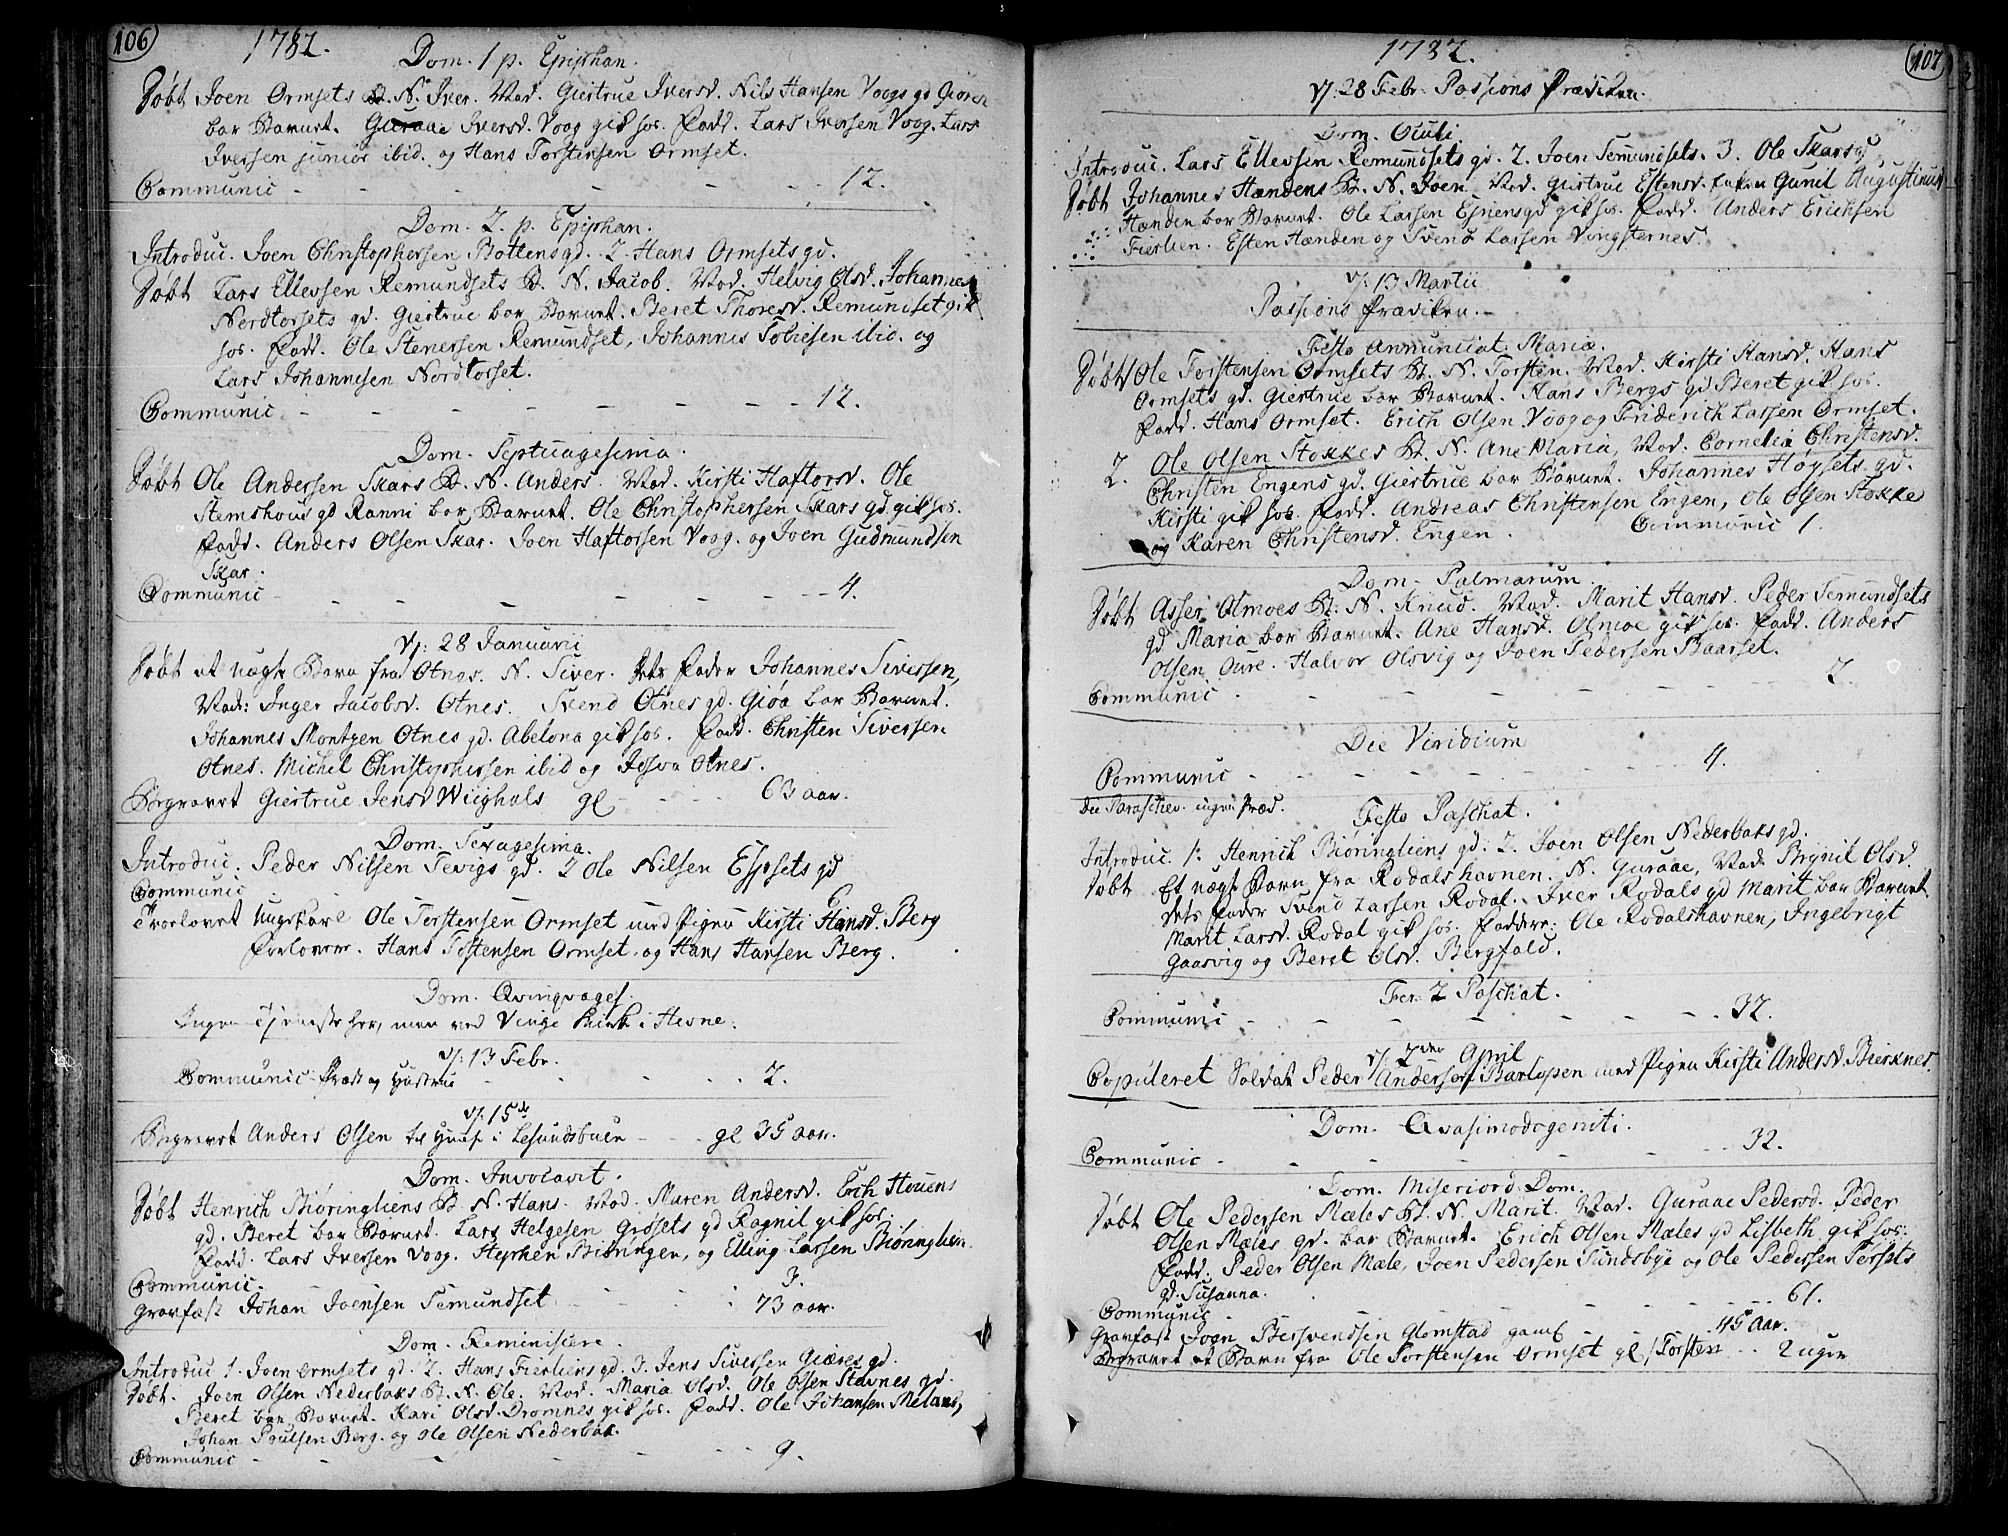 106
1782.
Dom. 1 p. Epiphan.
Døbt Joen Ormsets B. N. Iver. Mod. Giertrue Iversd. Nils Hansen Voogs gd
bar Barnet. Guraae Iversd. Voog gik hos. Fadd. Lars Iversen Voog. Lars
Iversen junior ibid. og Hans Torstensen Ormset.
Communic - - - - - - 12.
Dom. 2. p. Epiphan.
Introduc. Joen Christophersen Bottens gd. 2. Hans Ormsets gd.
Døbt Lars Ellevsen Remundsets B. N. Jacob. Mod. Helvig Olsd. Johannes
Nordtorsets gd. Giertrue bar Barnet. Beret Thoresd. Remundset gik
hos. Fadd. Ole Stenersen Remundset, Johannes Tobiesen ibid. og
Lars Johannesen Nordtorset.
Communic - - - - - - 12.
Dom. Septuagesima.
Døbt Ole Andersen Skars B. N. Anders. Mod. Kirsti Haftorsd. Ole
Stemshous gd Ranni bar Barnet. Ole Christophersen Skars gd. gik hos.
Fadd. Anders Olsen Skar. Joen Haftorsen Voog. og Joen Gudmundsen
Skar.
Communic - - - - - - 4.
d: 28 Januarii
Døbt et uægte Barn fra Otnes. N. Siver. Dets Fader Johannes Siversen,
Mod: Inger Jacobsd. Otnes. Svend Otnes gd. Giøa bar Barnet.
Johannes Montzen Otnes gd. Abelona gik hos. Fadd. Christen Siversen
Otnes. Michel Christophersen ibid og Otnes.
Begravet Giertrue Jensd Wiighals gl - - - 63 aar.
Dom. Sexagesima.
Introduc. Peder Nilsen Sevigs gd. 2 Ole Nilsen Espsets gd
Communic - - 6.
Trolovet Ungkarl Ole Torstensen Ormset med Pigen Kirsti Hansd. Berg
Forlovere. Hans Tostensen Ormset. og Hans Hansen Berg.
Dom. Qvinqvages.
Ingen Tjeneste her, men ved Vinge Kirke i Hevne.
d: 13 Febr.
Communic Præst og Hustrue - - - 2.
d: 15de
Begravet Anders Olsen i Lesundsbuen - - gl 35 aar.
Dom. Invocavit.
Døbt Henrich Biøringliens B. N. Hans. Mod. Maren Andersd. Erich Houens
gd. Beret bar Barnet. Lars Helgesen Grøsets gd Ragnil gik hos.
Fadd. Lars Iversen Voog. Stephen Biøringen, og Elling Larsen Biøringlien.
Communic. - - - - - - 3.
Gravfæst Johan Joensen Semundset - - - 73 aar.
Dom. Reminiscere.
Introduc 1. Joen Ormsets gd. 2. Hans Fierliens gd. 3. Jens Siversen Giæres gd.
Døbt. Joen Olsen Nederbaks B. N. Ole. Mod. Maria Olsd. Ole Olsen Stavnes gd.
Beret bar Barnet. Kari Olsd. Dromnes gik hos. Fadd. Ole Johansen Meland,
Johan Poulsen Berg. og Ole Olsen Nederbak.
Communic - - - - - - 9.
107
1782.
d: 28 Febr. Passions Prædiken.
Dom. Oculi
Introduc. Lars Ellevsen Remundsets gd. 2. Joen Semundsets. 3. Ole Skars gd.
Døbt Johannes Hændens B. N. Joen. Mod. Giertrue Estensd. Enken Gunil Augustinus
Hænden bar Barnet. Ole Larsen Espnes gd gik hos. Fadd. Anders Erichsen
Fierlien. Esten Hænden og Svend Larsen Vingsternes.
d: 13 Martii
Passions Prædiken.
Festo Annunciat. Mariæ.
Døbt Ole Torstensen Ormsets B. N. Torsten. Mod. Kirsti Hansd. Hans
Ormsets gd. Giertrue bar Barnet. Hans Bergs gd Beret gik hos.
Fadd. Hans Ormset. Erich Olsen Voog og Friderich Larsen Ormset.
2. Ole Olsen Stokkes B. N. Ane Maria, Mod. Cornelia Christensd.
Christen Engens gd. Giertrue bar Barnet. Johannes Høysets gd.
Kirsti gik hos. Fadd. Andreas Christensen Engen, Ole Olsen Stokke
og Karen Christensd. Engen. Communic 1.
Dom. Palmarum.
Døbt Asser Olmoes B. N. Knud. Mod. Marit Hansd. Peder Semundsets
gd Maria bar Barnet. Ane Hansd. Olmoe gik hos. Fadd. Anders
Olsen Oure. Halvor Olsvig og Joen Pedersen Baarset.
Communic. - - - - - - 2.
Die Viridium
Communic - - - - - - 4.
Die Parascheu. ingen Præd.
Festo Paschat.
Introduc. 1. Henrich Biøringliens gd. 2. Joen Olsen Nederbaks gd.
Døbt Et uægte Barn fra Rodalshavnen. N. Guraae, Mod. Brynil Olsd.
Dets Fader Svend Larsen Rodal. Iver Rodals gd Marit bar Barnet
Marit Larsd. Rodal gik hos. Faddere. Ole Rodalshavnen, Ingebrigt
Gaasvig og Beret Olsd. Bergfald.
Fer. 2 Paschat.
Communic - - - - - - 32.
d: 2den April
Copuleret Soldat Peder Andersen Barlopen med Pigen Kirsti Andersd. Bierknes.
Dom. Qvasimodogeniti.
Communic - - - - - - 32.
Dom. Misericord. Dom.
Døbt Ole Pedersen Mæles B. N. Marit. Mod. Guraae Pedersd. Peder
Olsen Mæles gd. bar Barnet. Erich Olsen Mæles gd Lisbeth gik hos.
Fadd. Peder Olsen Mæle, Joen Pedersen Sundsbye og Ole Pedersen Persets
gd. Susanna.
Communic - - - - - - 61.
Gravfæst Joen Bersvendsen Glomstad - - 45 Aar.
Begravet et Barn fra Ole Torstensen Ormset gl /Torsten - - 2 uger